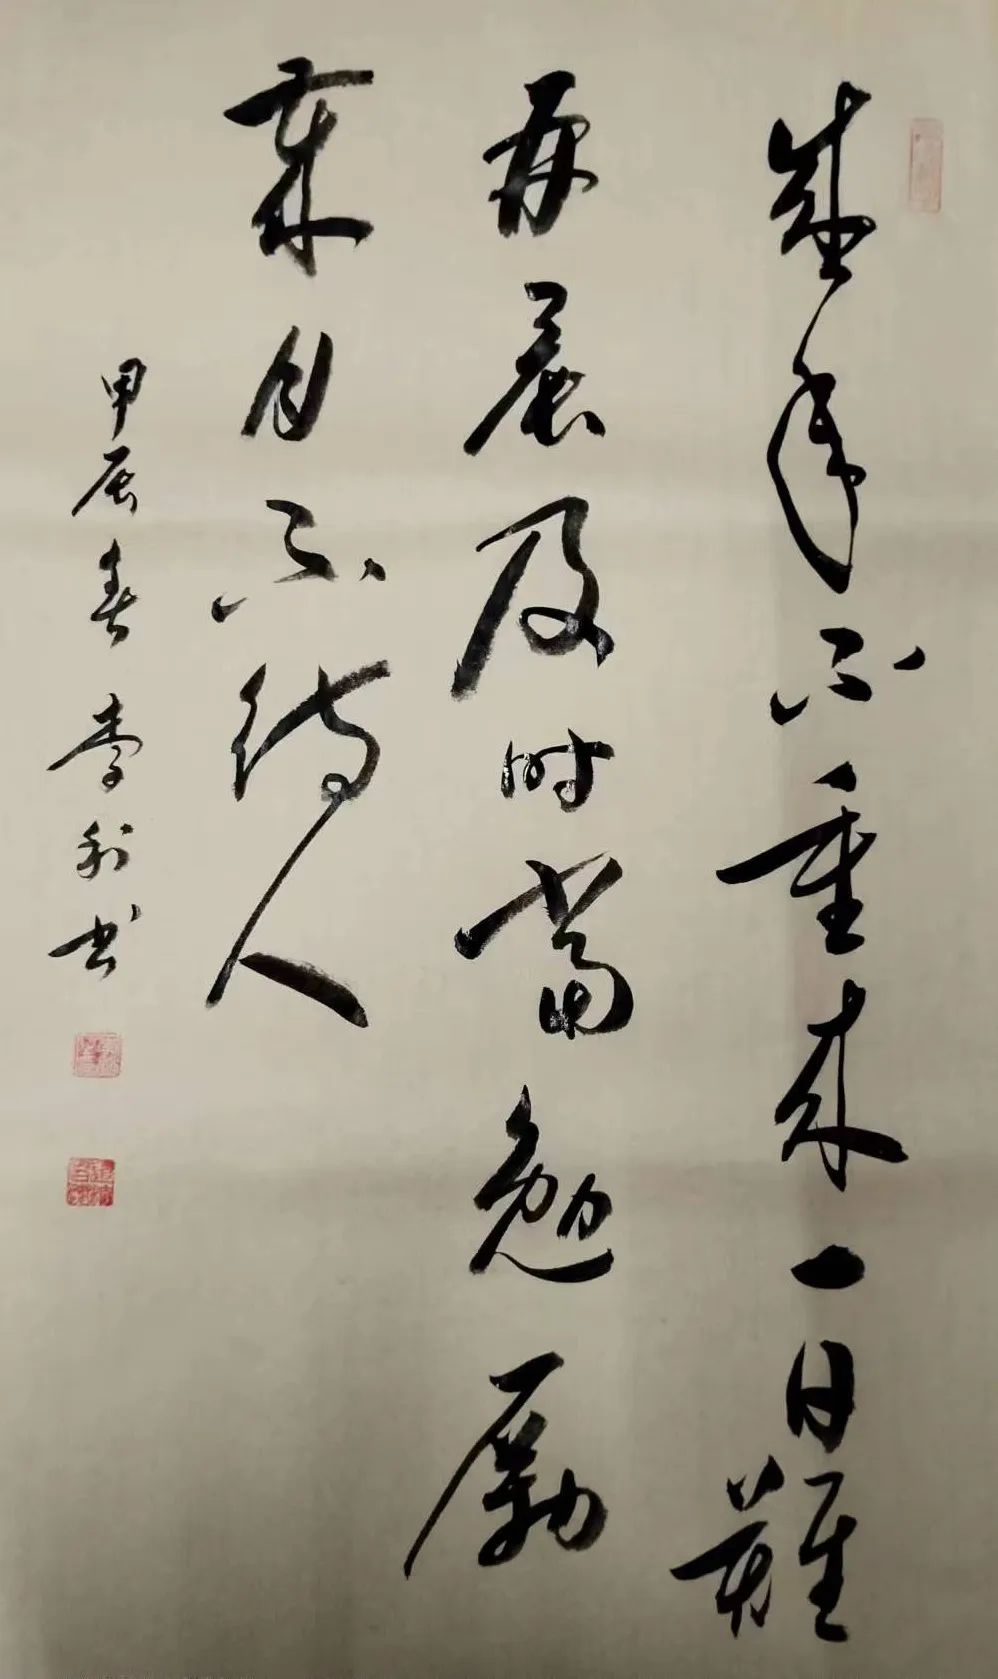 盛年不重来一日難
再晨及时當勉勵
歲月不待人
甲辰春李利书